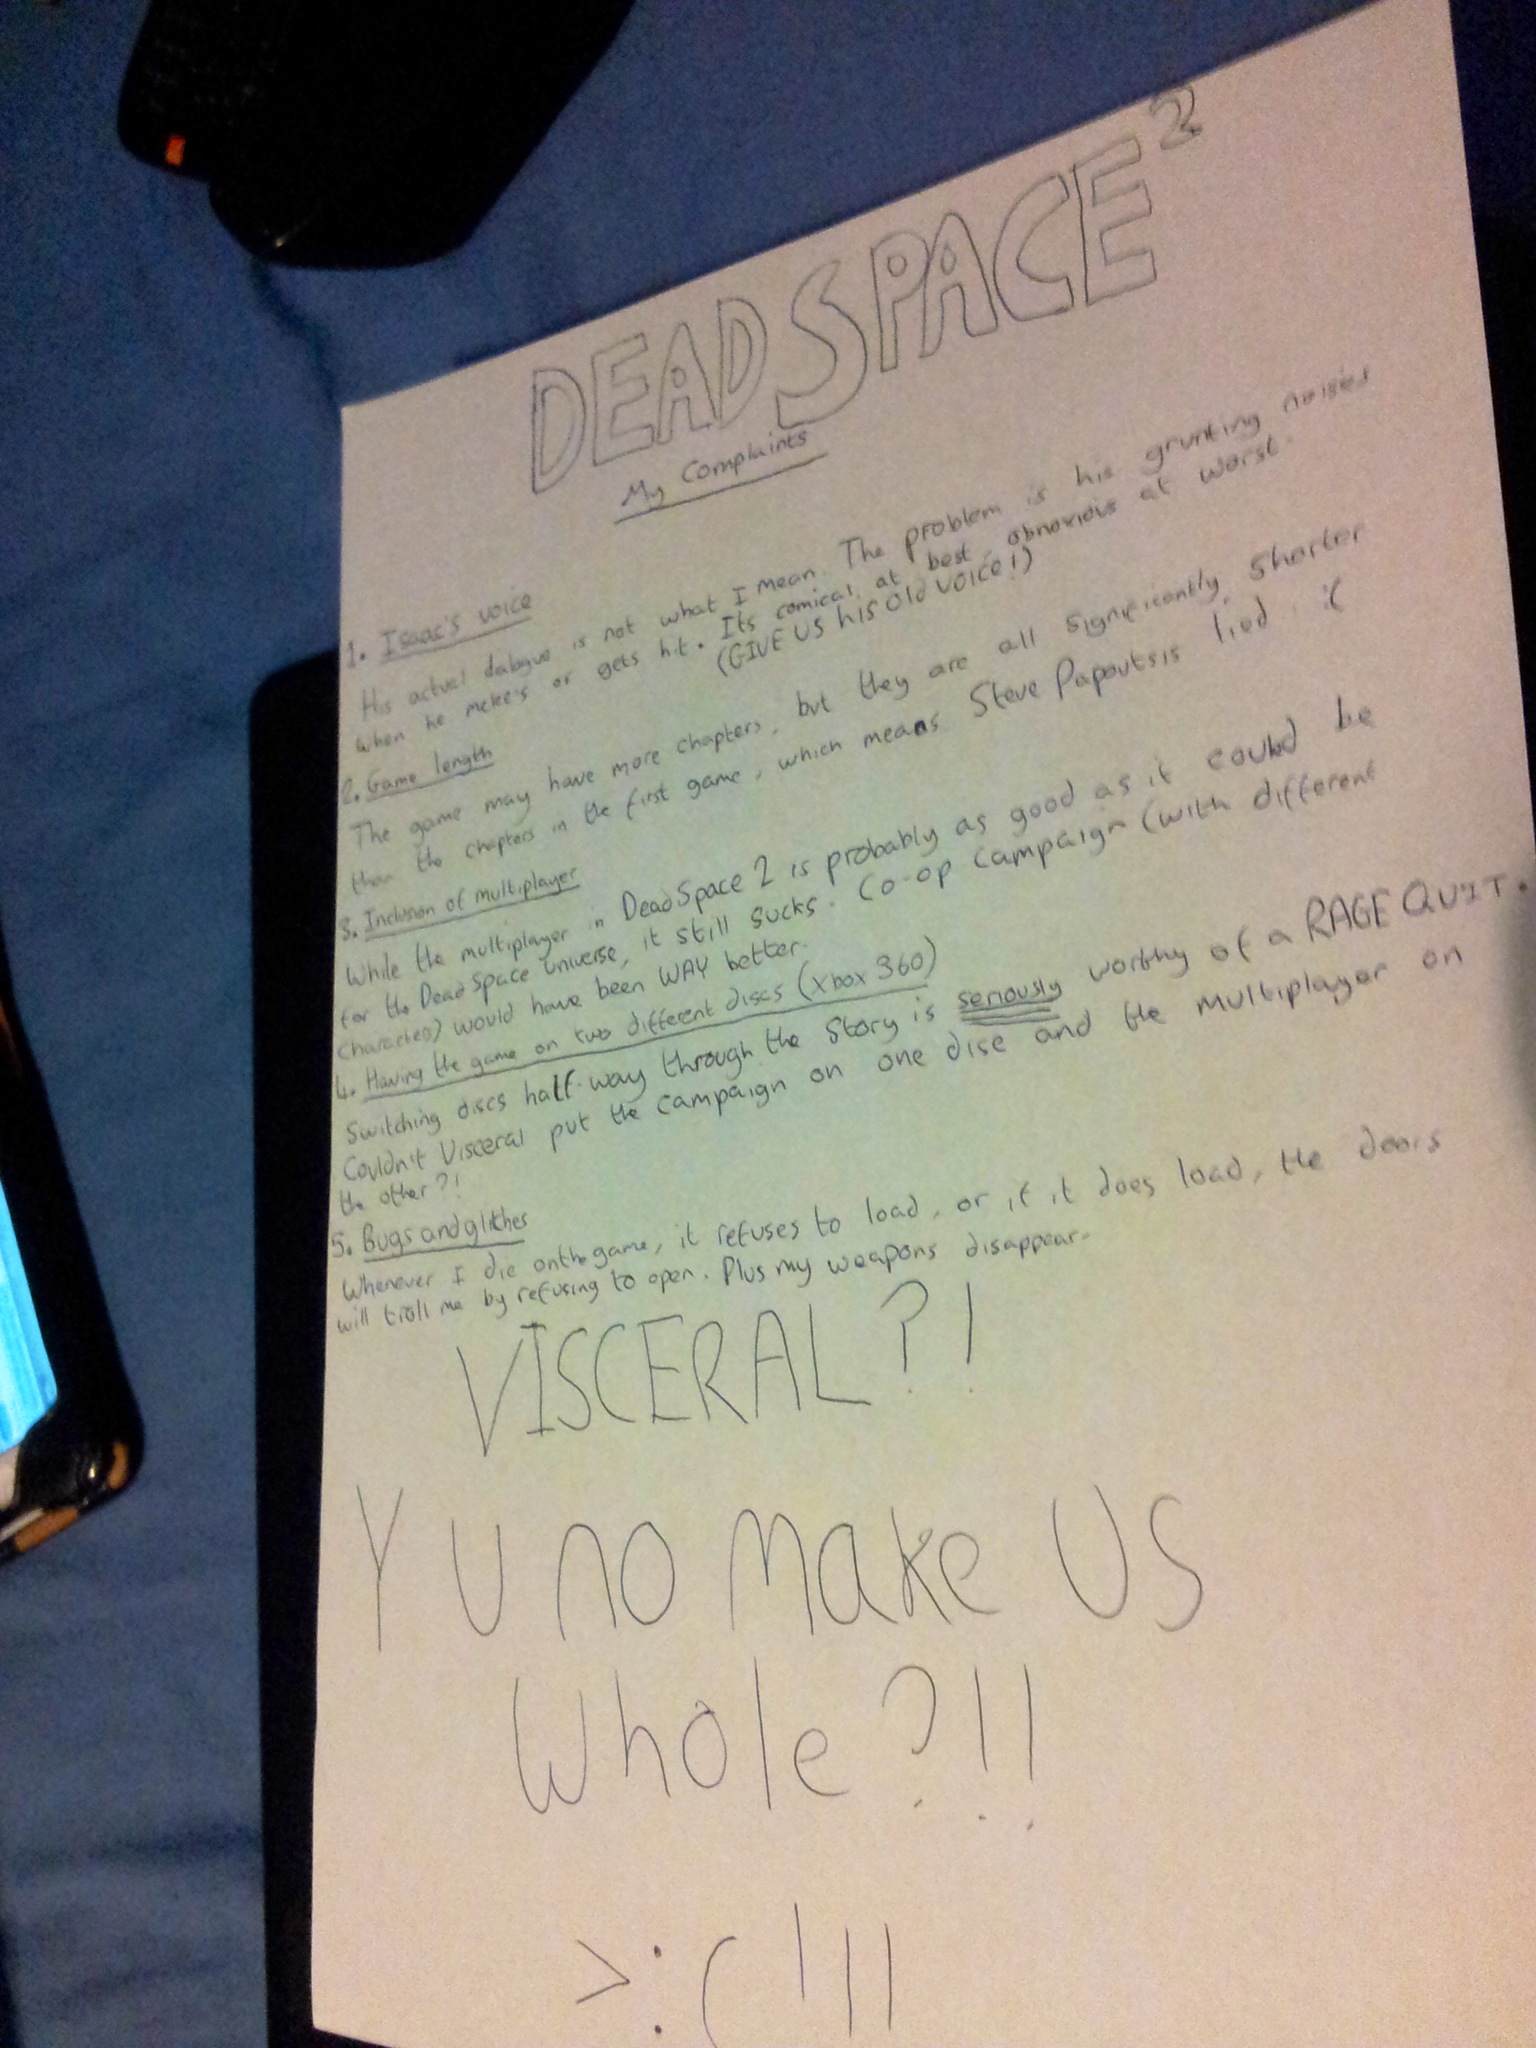 DEAD SPACE 2
My Complaints
1. Isaac's voice
His actual dialogue is not what I mean. The problem is his grunting noises
when he melee's or gets hit. Its comical at best, obnoxious at worst.
(GIVE US his old voice!)
2. Game length
The game may have more chapters, but they are all significantly shorter
than the chapters in the first game, which means Steve Papoutsis lied :(
3. Inclusion of multiplayer
While the multiplayer in Dead Space 2 is probably as good as it could be
for the Dead Space universe, it still sucks. Co-op campaign (with different
characters) would have been WAY better.
4. Having the game on two different discs (Xbox 360)
Switching discs half-way through the story is seriously worthy of a RAGE QUIT.
Couldn't Visceral put the campaign on one disc and the multiplayer on
the other?!
5. Bugs and glitches
Whenever I die on the game, it refuses to load, or if it does load, the doors
will troll me by refusing to open. Plus my weapons disappear.
VISCERAL?!
Y U no make US
Whole?!!
>:( !!!